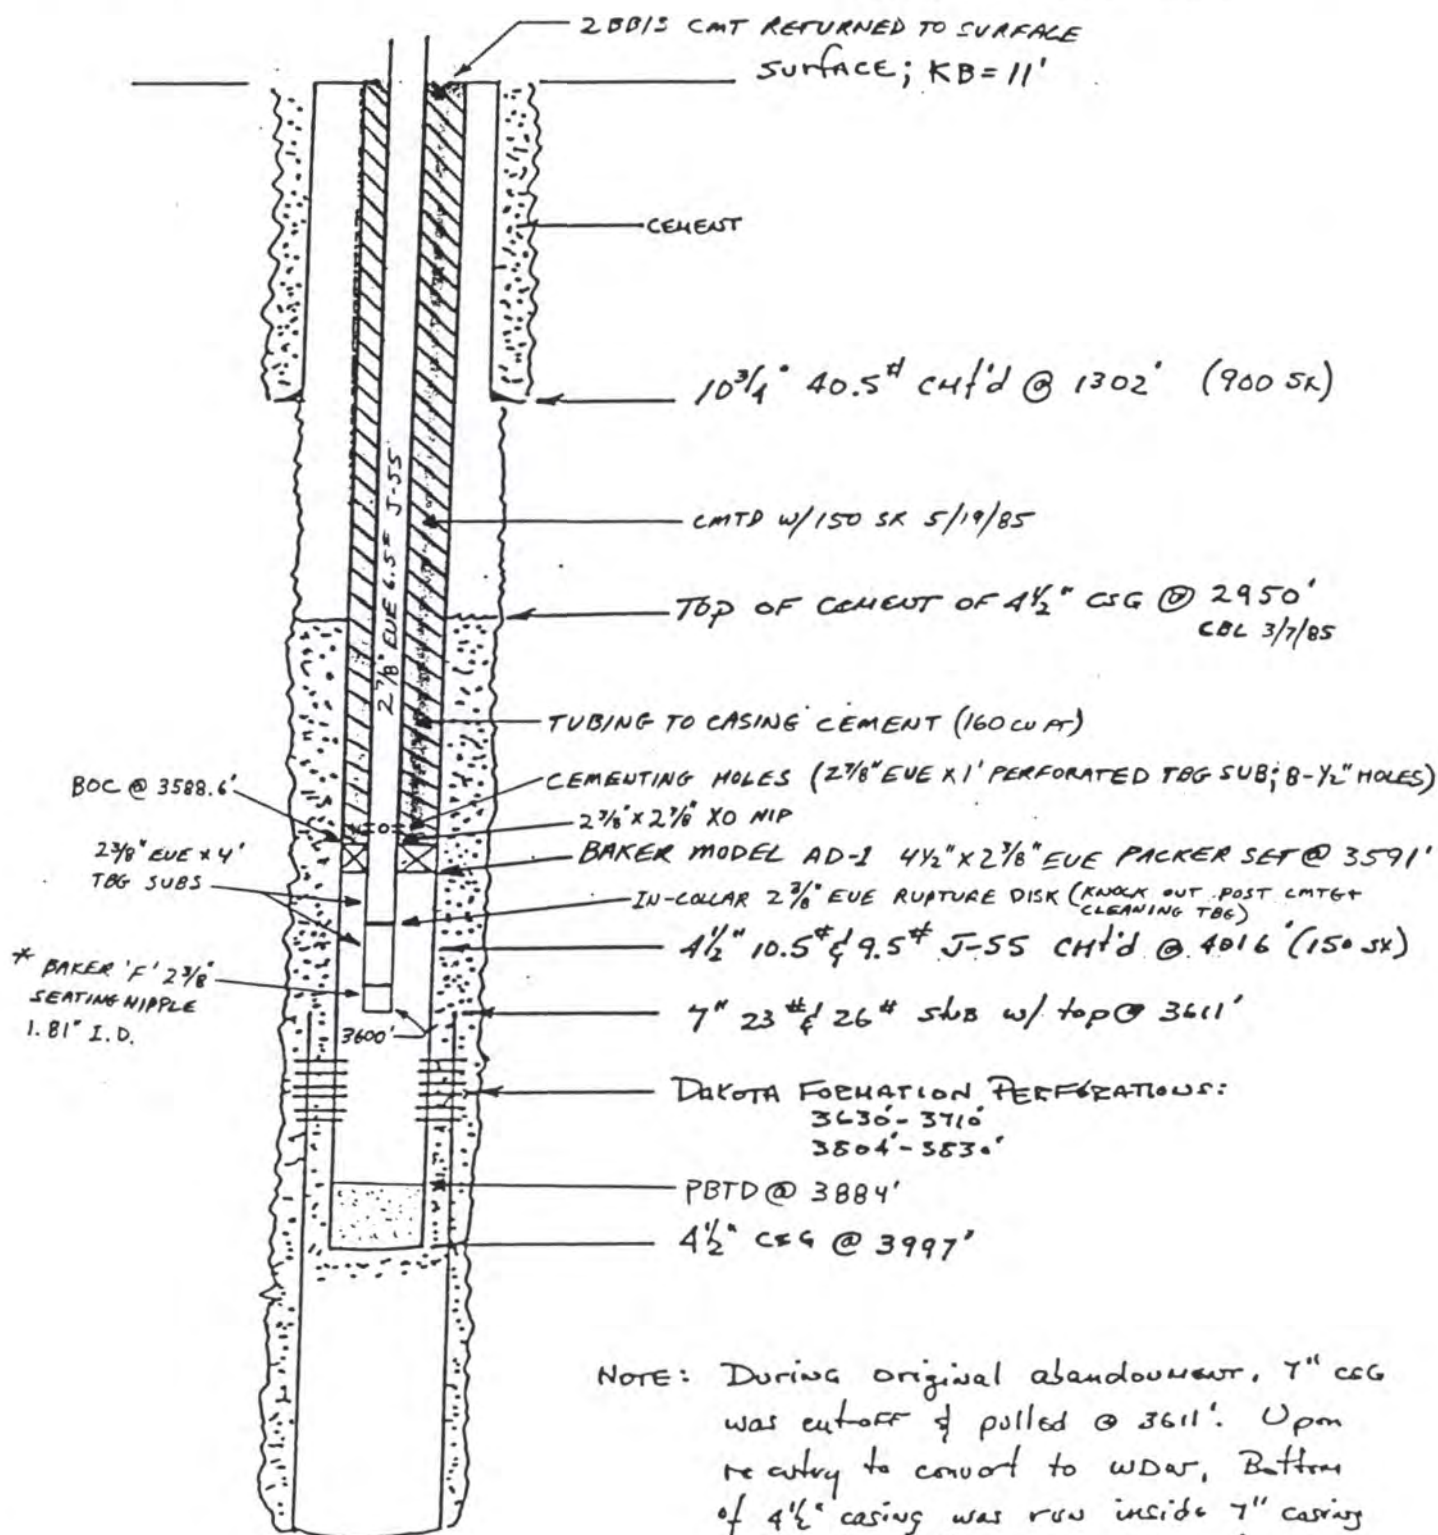 2 BBLS CMT RETURNED TO SURFACE
SURFACE; KB = 11'
CEMENT
10 3/4" 40.5# CMT'd @ 1302' (900 SX)
2 7/8" EUE 6.5# J-55
CMTD W/150 SX 5/19/85
TOP OF CEMENT OF 4 1/2" CSG @ 2950'
CBL 3/7/85
TUBING TO CASING CEMENT (160 CU FT)
CEMENTING HOLES (2 7/8" EUE X 1' PERFORATED TBG SUB; 8-1/2" HOLES)
BOC @ 3588.6'
2 3/8" X 2 7/8" XO NIP
BAKER MODEL AD-1 4 1/2" X 2 3/8" EUE PACKER SET @ 3591'
2 3/8" EUE X 4'
TBG SUBS
IN-COLLAR 2 3/8" EUE RUPTURE DISK (KNOCK OUT POST CMTG &
CLEANING TBG)
4 1/2" 10.5# & 9.5# J-55 CMT'd @ 4016' (150 SX)
* BAKER 'F' 2 3/8"
SEATING NIPPLE
1.81" I.D.
7" 23# & 26# stub w/ top @ 3611'
3600'
DAKOTA FORMATION PERFORATIONS:
3630'-3710'
3804'-3830'
PBTD @ 3884'
4 1/2" CSG @ 3997'
NOTE: During original abandonment, 7" CSG
was cut-off & pulled @ 3611'. Upon
re entry to convert to WDW, Bottom
of 4 1/2" casing was run inside 7" casing